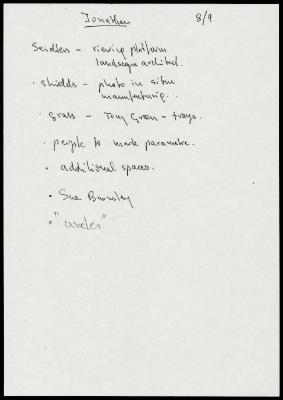 Jonathan 8/9
Seidler - viewing platform
landscape architect.
· shields - photo in situ
manufacturing..
· grass - Tom Green - trays.
· people to mark parametre.
· additional spaces.
· Sue Barnsley
· "circles"